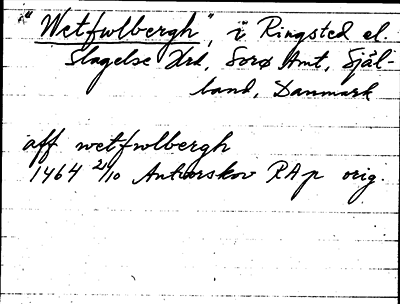 "Wetfwlbergh", i Ringsted el.
Slagelse Hrd, Sorø Amt, Själ-
land, Danmark
aff wetfwlbergh
1464 2/10 Antvorskov RAp orig.